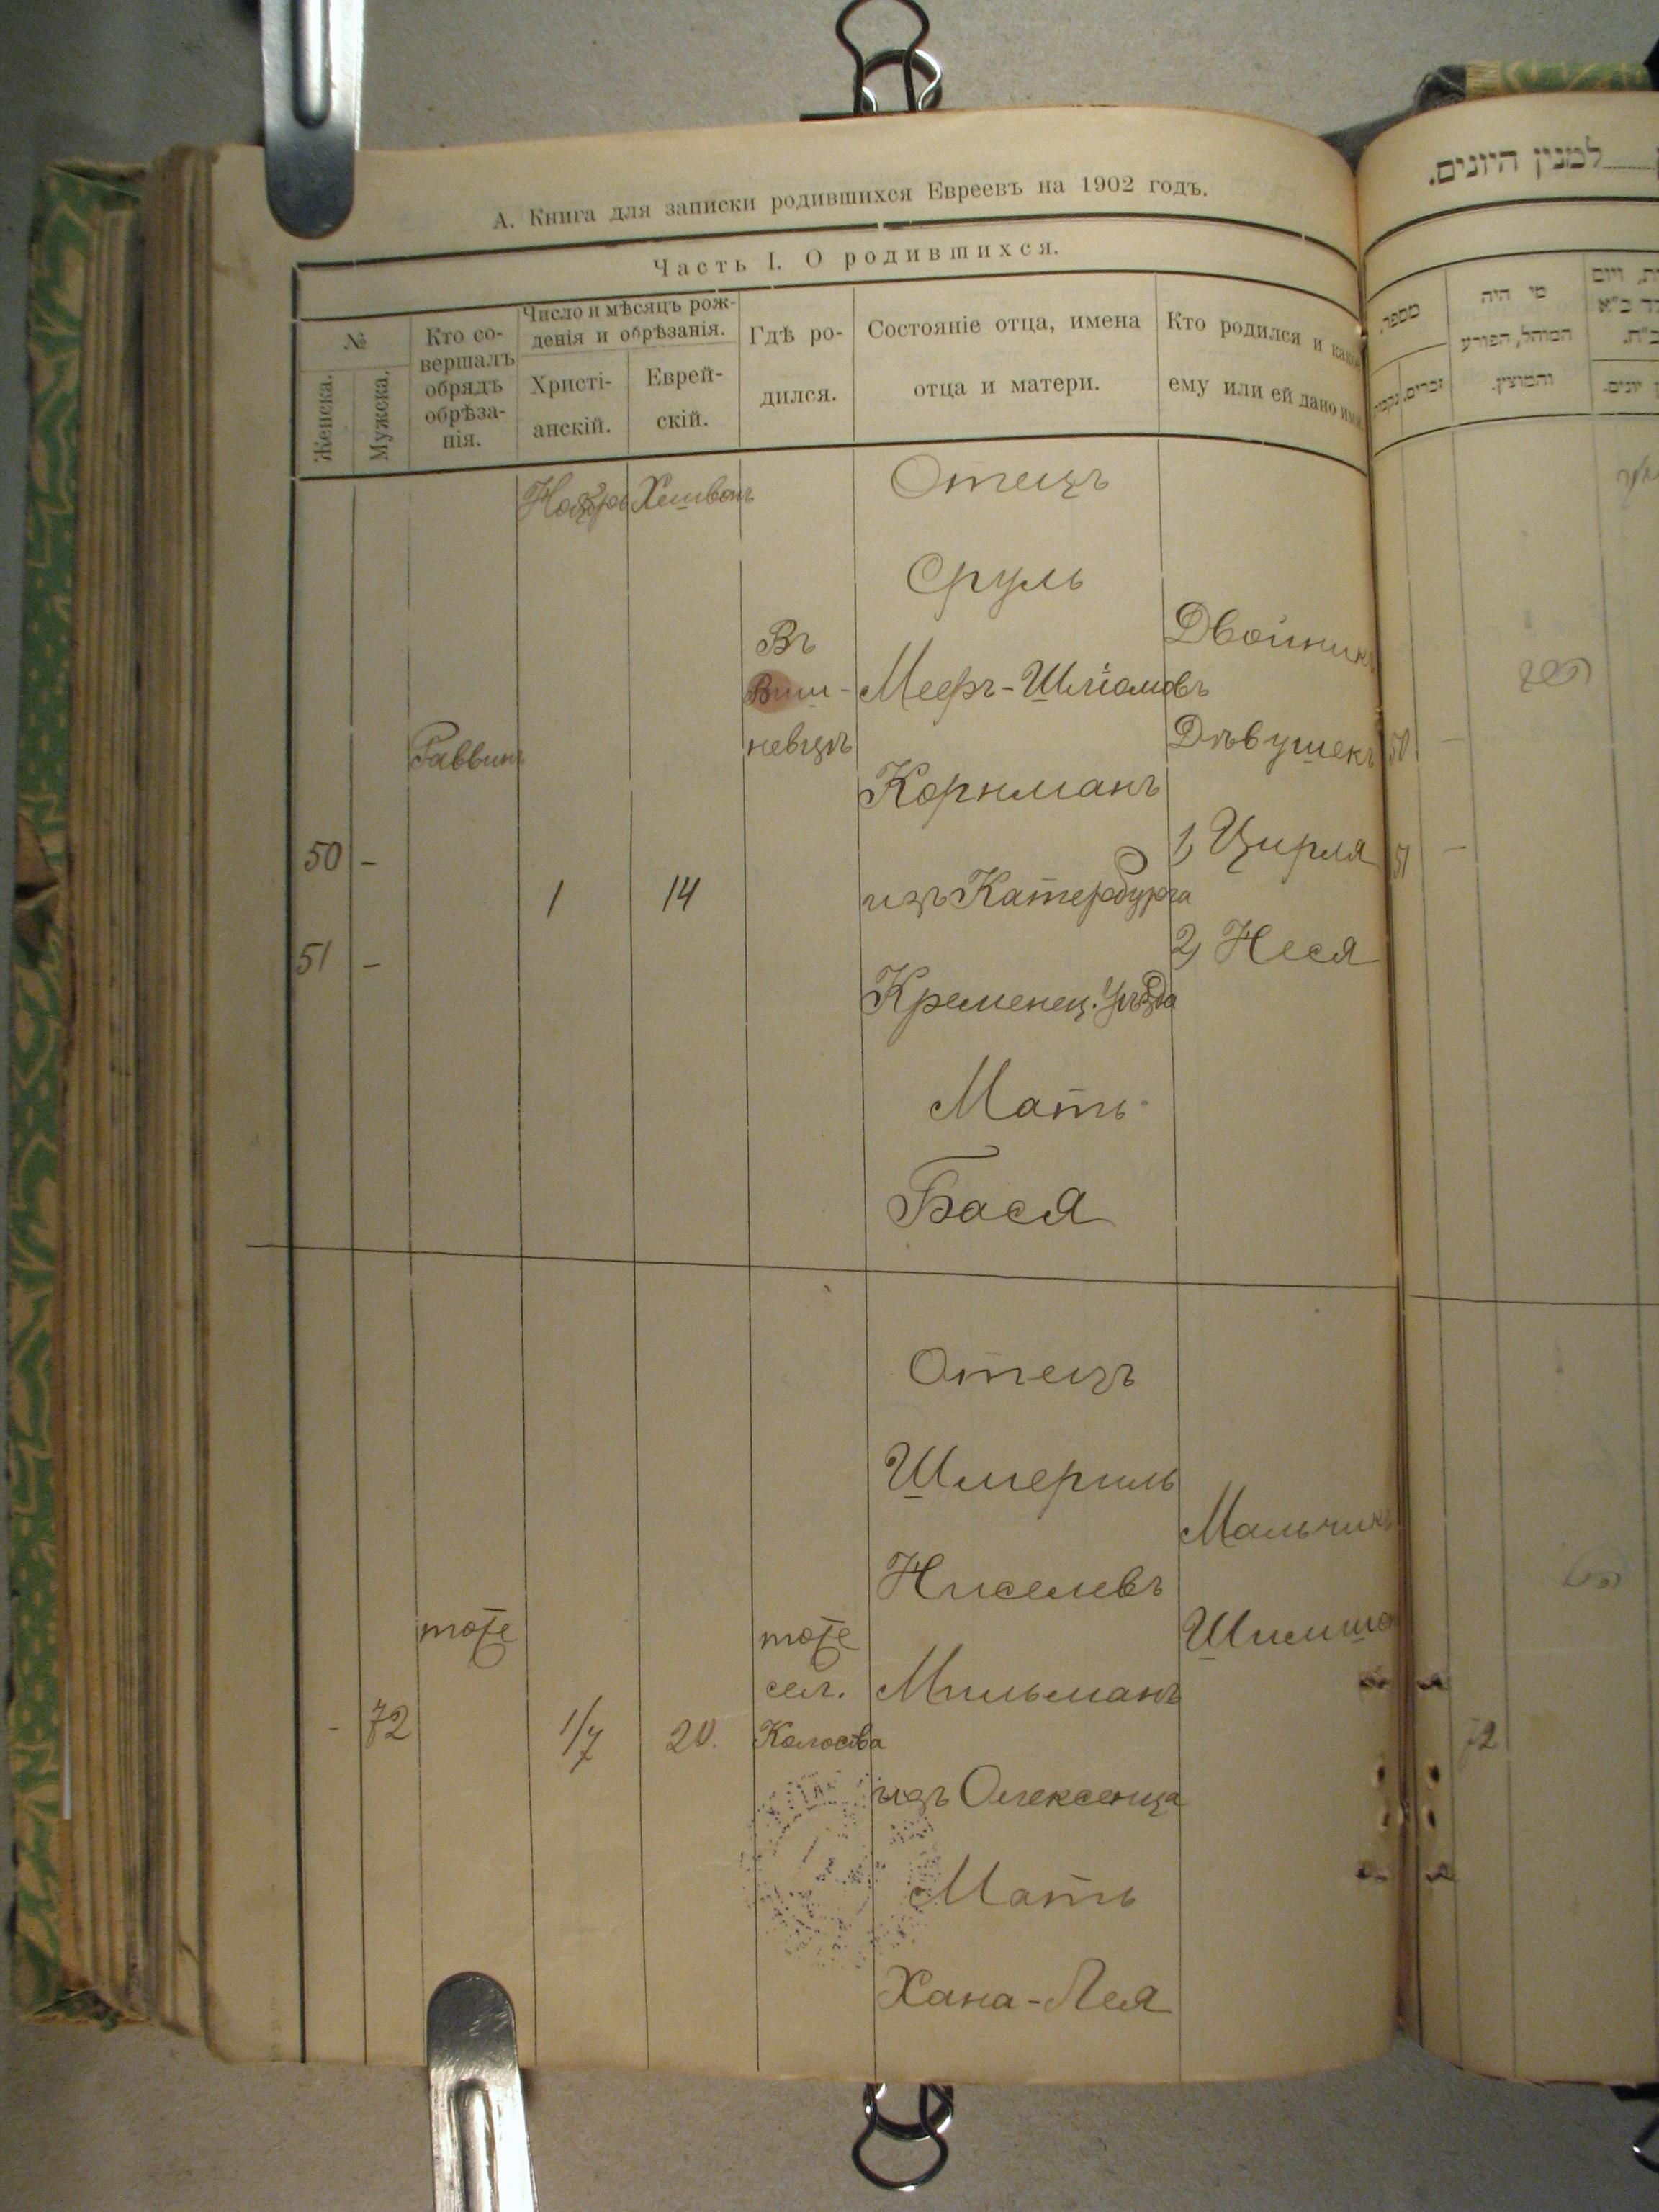 А. Книга для записки родившихся Евреевъ на 1902 годъ.
Часть I. О родившихся.
№
Женска.
Мужска.
Кто со-
вершалъ
обрядъ
обрѣза-
нія.
Число и мѣсяцъ рож-
денія и обрѣзанія.
Христі-
анскій.
Еврей-
скій.
Гдѣ ро-
дился.
Состояніе отца, имена
отца и матери.
Кто родился и како
ему или ей дано имя
Ноябрь Хешвонъ
50 -
51 -
Раввинъ
1
14
Въ
Виш-
невцѣ
Отецъ
Сруль
Мееръ-Шліомовъ
Корнманъ
изъ Катербурга
Кременец. уѣзда
Мать
Бася
Двойникъ
Дѣвушекъ
1, Цирля
2, Неся
- 72
тоже
1/7
20.
тоже
сел.
Колосова
Отецъ
Шмериль
Ниселевъ
Мильманъ
изъ Олексенца
Мать
Хана-Лея
Мальчикъ
למנין היונים.
מספר.
זכרים.
נקבות
מי היה
המוהל, הפורע
והמוצץ.
יונים.
50 -
51 -
72